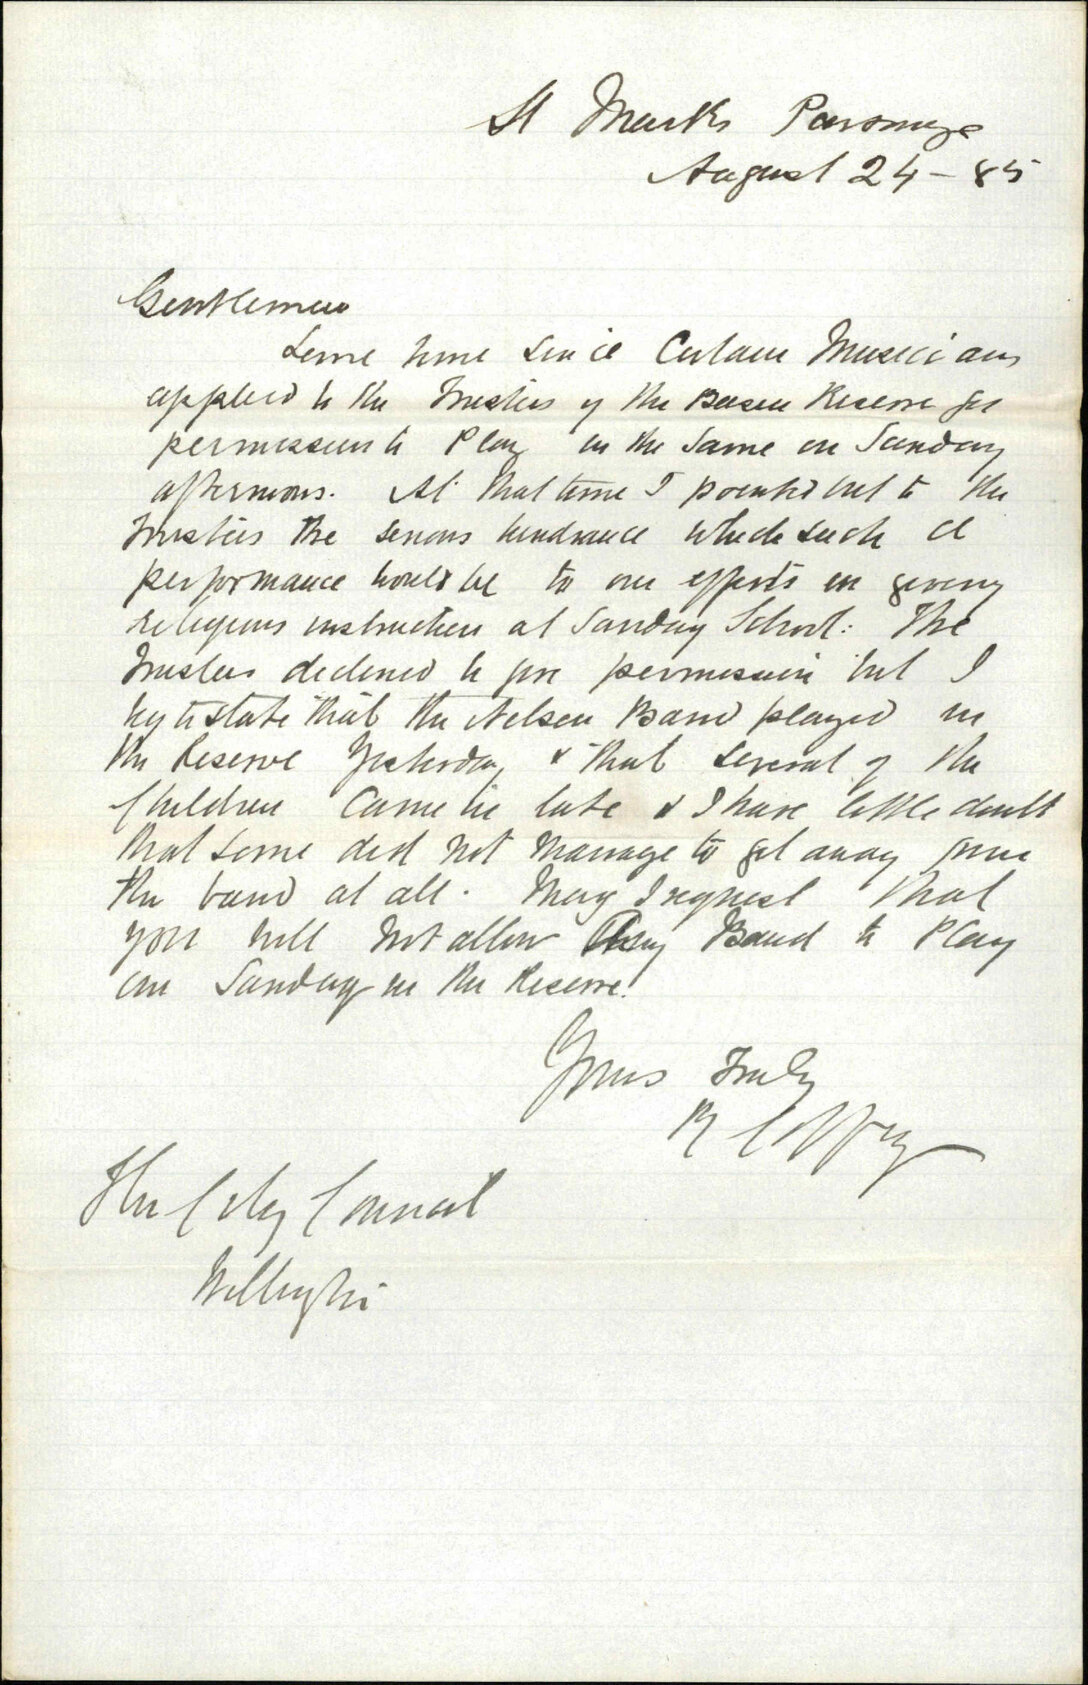 St Marks Parsonage
August 24 - 85
Gentlemen
Some time since Certain Musicians
applied to the Trustees of the Basin Reserve for
permission to Play in the Same on Sunday
afternoons. At that time I pointed out to the
Trustees the serious hindrance which such a
performance would be to our efforts in giving
religious instruction at Sunday School: The
Trustees declined to give permission but I
beg to state that the Nelson Band played in
the Reserve Yesterday & that several of the
Children Came in late & I have little doubt
that some did not manage to get away from
the band at all. May I request that
you will not allow Any Band to Play
on Sunday in the Reserve.
Yours Truly
R Coffey
The City Council
Wellington